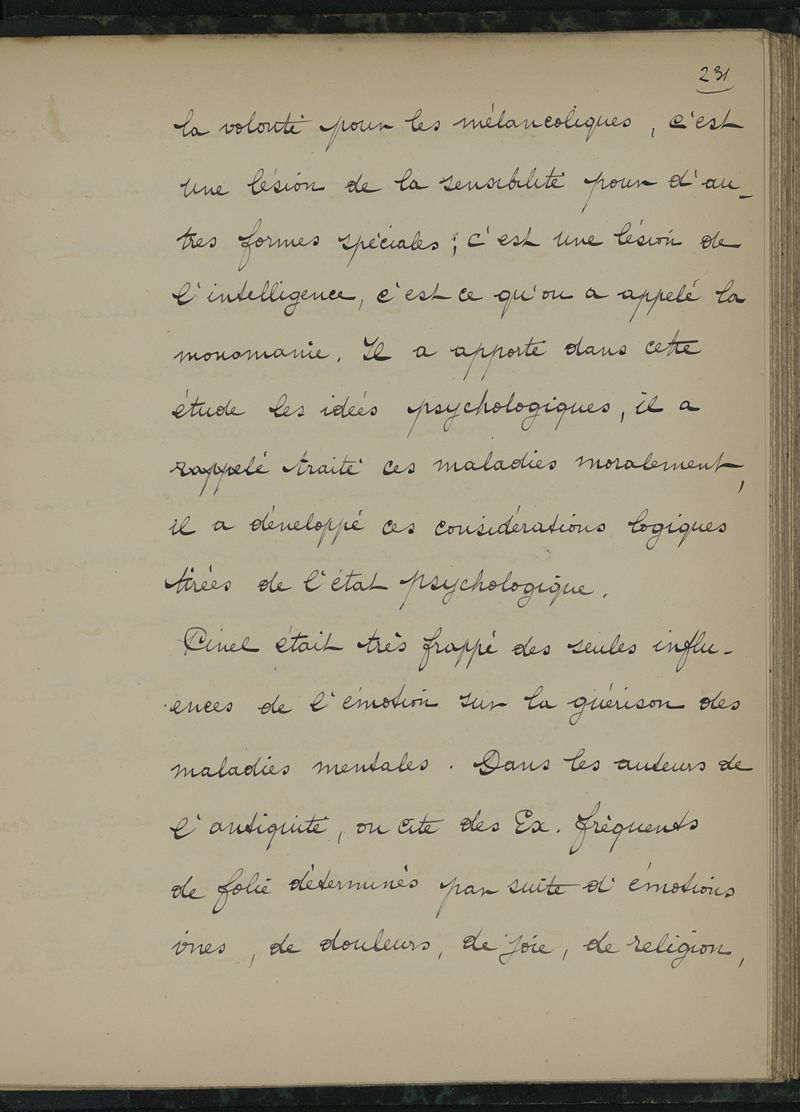 231
la volonté pour les mélancoliques, c'est
une lésion de la sensibilité pour d'au-
tres formes spéciales; c'est une lésion de
l'intelligence, c'est ce qu'on a appelé la
monomanie. Il a apporté dans cette
étude les idées psychologiques, il a
rappelé traité ces maladies moralement,
il a développé ces considérations logiques
tirées de l'état psychologique.
Pinel était très frappé des seules influ-
ences de l'émotion sur la guérison des
maladies mentales. Dans les auteurs de
l'antiquité, on cite des Ex. fréquents
de folie déterminés par suite d'émotions
, de douleurs, de joie, de religion,